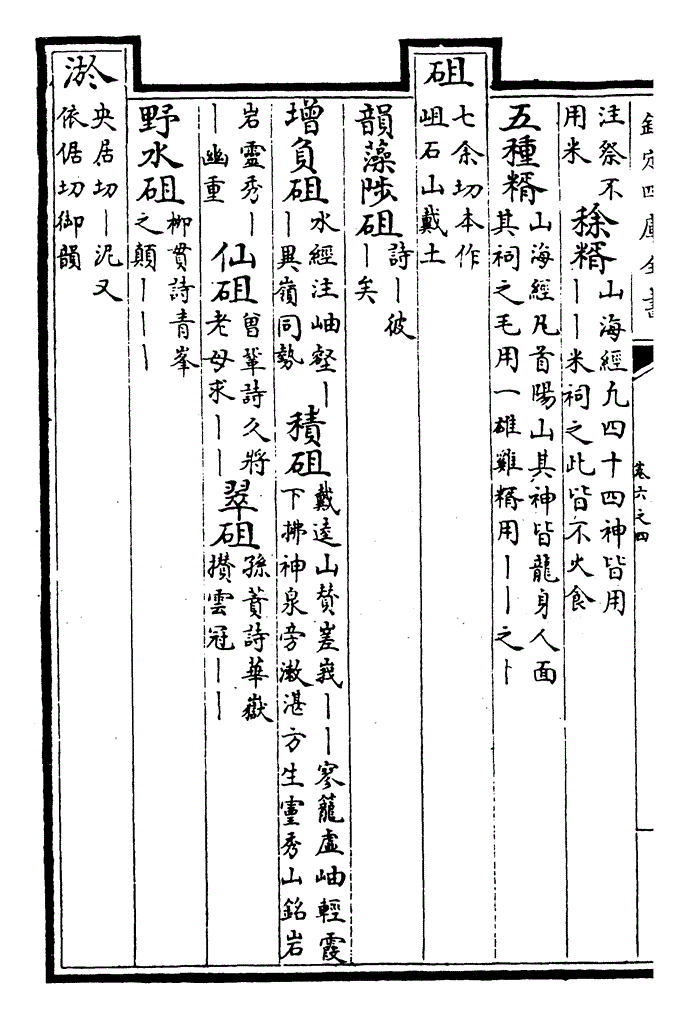 欽定四庫全書
卷六之四
注祭不
用米
稌糈
山海經凡四十四神皆用
丨丨米祠之此皆不火食
五種糈
山海經凡首陽山其神皆龍身人面
其祠之毛用一雄雞糈用丨丨之丨
砠
七余切本作
岨石山戴土
韻藻陟砠
詩丨彼
丨矣
增負砠
水經注岫壑丨
丨異嶺同勢
積砠
戴逵山贊嵳峩丨丨寥籠虛岫輕霞
下拂神泉旁漱湛方生靈秀山銘岩
岩靈秀丨
丨幽重
仙砠
曾鞏詩久將
老母求丨丨
翠砠
孫蕡詩華嶽
攅雲冠丨丨
野水砠
柳貫詩青峯
之顛丨丨丨
淤
央居切丨泥又
依倨切御韻